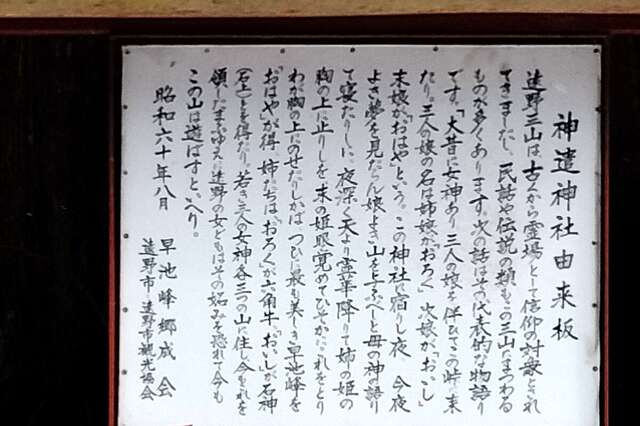 神遣神社由来板
遠野三山は、古くから霊場として信仰の対象とされ
てきましたし、民話や伝説の類もこの三山にまつわる
ものが多くあります。次の話はその代表的な物語り
です。「大昔に女神あり三人の娘を伴ひてこの峠に来
たり。三人の娘の名は姉娘が「おろく」次娘が「おいし」
末娘が「おはや」という。この神社に宿りし夜今夜
よき夢を見たらん娘によき山をさずべしと母の神の語り
て寝たりしに、夜深く天より霊華降りて姉の姫の
胸の上に止りしを末の姫眼覚めてひそかにこれをとり
わが胸の上にのせたりしかば、つひに最も美しき早池峰を
「おはや」が得、姉たちは「おろく」が六角牛、「おいし」が石神
(石上)とを得たり。若き三人の女神各三つの山に住し今もこれを
領したまふゆえに遠野の女どもはその妬みを恐れて今も
この山は遊ばずといへり。
昭和六十年八月
早池峰郷成会
遠野市・遠野市観光協会